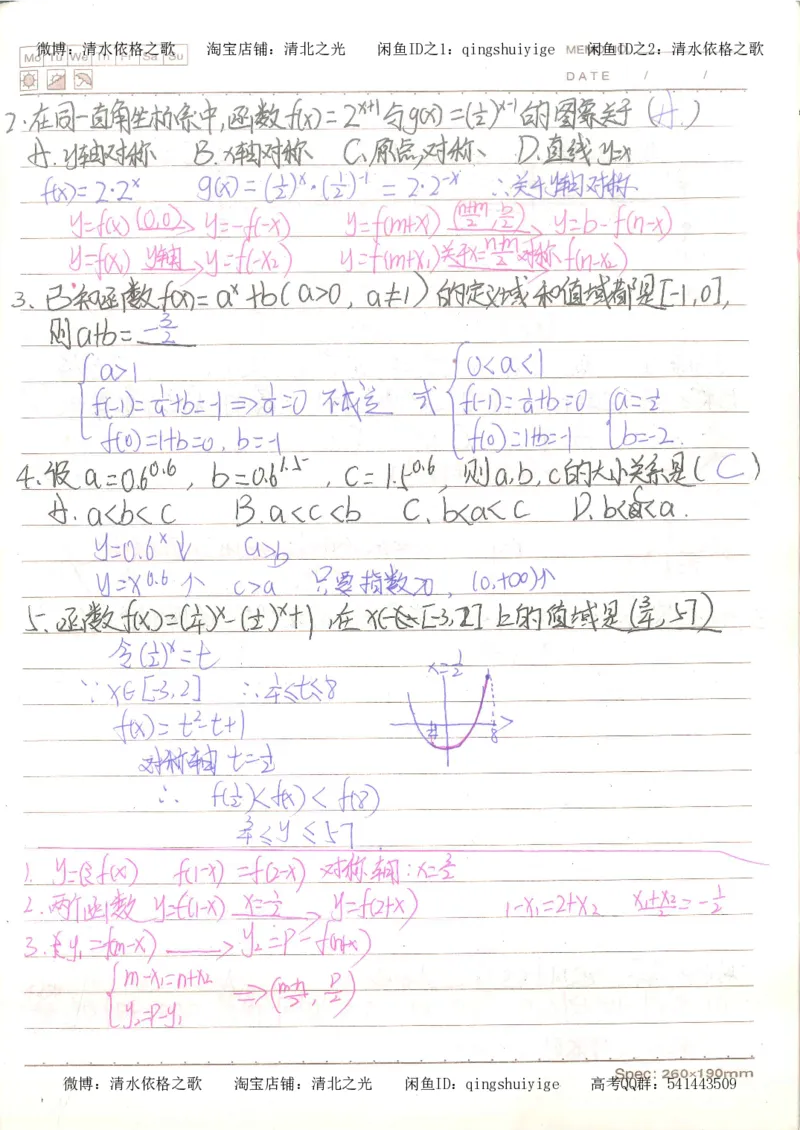 微博：清水依格之歌 淘宝店铺：清北之光 闲鱼ID之1：qingshuiyige 闲鱼ID之2：清水依格之歌
Mo Tu We Th Fr Sa Su
DATE / /
2.在同一直角坐标系中,函数f(x)=2^{x+1}与g(x)=(1/2)^{x-1}的图象关于(A.)
A.y轴对称 B.x轴对称 C.原点对称、 D.直线y=x
f(x)=2·2^x g(x)=(1/2)^x·(1/2)^{-1}=2·2^{-x} ∴关于y轴对称
y=f(x) (0,0)→ y=-f(-x) y=f(m+x) (n+m/2, b/2)→ y=b-f(n-x)
y=f(x) y轴→ y=f(-x₂) y=f(m+x₁)关于x=n+m/2对称 f(n-x₂)
3、已知函数f(x)=a^x+b(a>0，a≠1)的定义域和值域都是[-1,0],
则a+b=-3/2
{a>1 {0<a<1
f(-1)=1/a+b=-1⇒1/a=0 不成立 或 f(-1)=1/a+b=0 {a=1/2
f(0)=1+b=0，b=-1 f(0)=1+b=-1 b=-2.
4.设a=0.6^{0.6}，b=0.6^{1.5}，c=1.5^{0.6}，则a,b,c的大小关系是(C)
A.a<b<c B.a<c<b C.b<a<c D.b<c<a.
y=0.6^x↓ a>b
y=x^{0.6}↑ c>a 只要指数>0，(0,+∞)↑
5.函数f(x)=(1/4)^x-(1/2)^x+1,在x∈[-3,2]上的值域是(3/4,57)
令(1/2)^x=t
∵x∈[-3,2] ∴1/4≤t≤8
x=1/2
f(x)=t²-t+1
8
对称轴t=1/2
∴ f(1/2)<f(x)<f(8)
3/4≤y≤57
1. y=f(x) f(1-x)=f(2-x) 对称轴:x=3/2
2.两个函数 y=f(1-x) x=-1/2→ y=f(2+x) 1-x₁=2+x₂ x₁+x₂/2=-1/2
3. y₁=f(m-x)→ y₂=p-f(n+x)
{m-x₁=n+x₂
y₂=p-y₁ ⇒(m-n/2, p/2)
Spec: 260×190mm
微博：清水依格之歌 淘宝店铺：清北之光 闲鱼ID：qingshuiyige 高考QQ群：541443509